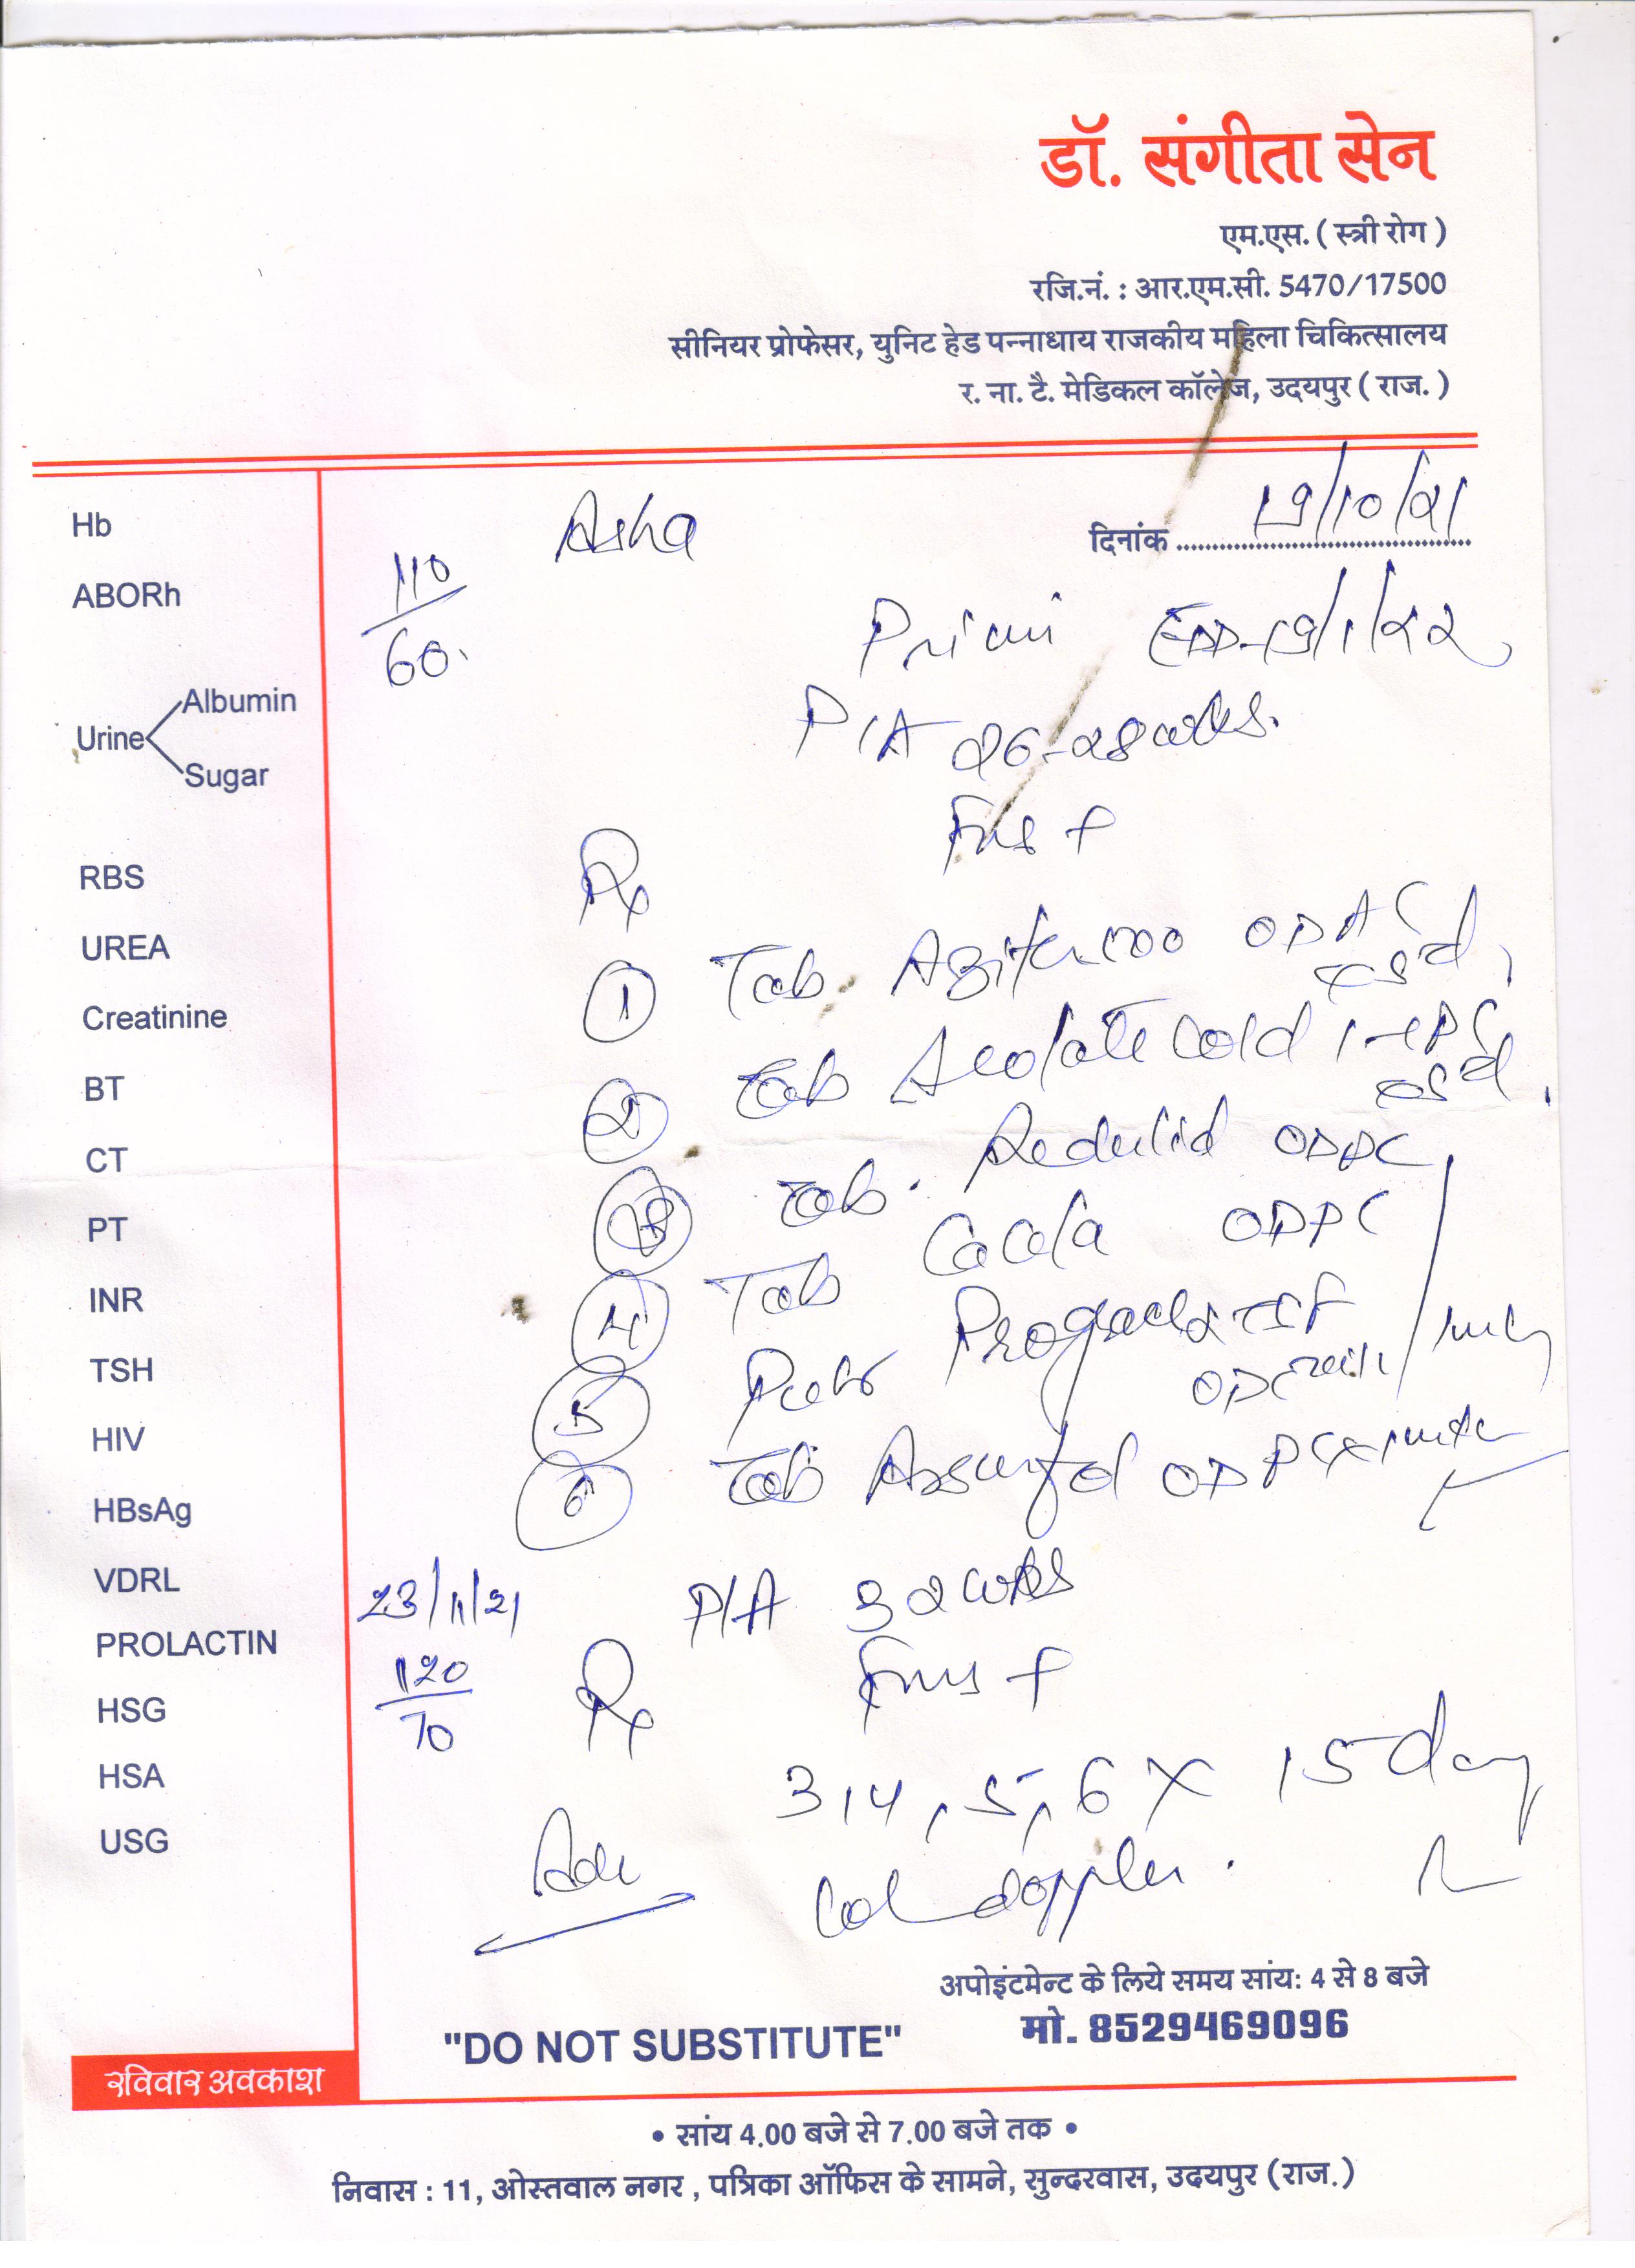 डॉ. संगीता सेन
एम.एस. ( स्त्री रोग )
रजि.नं. : आर.एम.सी. 5470/17500
सीनियर प्रोफेसर, युनिट हेड पन्नाधाय राजकीय महिला चिकित्सालय
र. ना. टै. मेडिकल कॉलेज, उदयपुर ( राज. )
दिनांक 19/10/21
Asha
110/60
Primi EDD-19/1/22
P/A 26-28 wks.
FHS +
Rx
① Tab.
② Tab cold
③ Tab. ODPC
④ Tab ODPC
⑤
⑥ Tab
23/11/21 P/A 32 wks
120/70
Rx FHS +
3,4,5,6 x 15 day
Adv Col doppler.
Hb
ABORh
Urine
Albumin
Sugar
RBS
UREA
Creatinine
BT
CT
PT
INR
TSH
HIV
HBsAg
VDRL
PROLACTIN
HSG
HSA
USG
अपोइंटमेन्ट के लिये समय सांय: 4 से 8 बजे
मो. 8529469096
"DO NOT SUBSTITUTE"
रविवार अवकाश
• सांय 4.00 बजे से 7.00 बजे तक •
निवास : 11, ओस्तवाल नगर , पत्रिका ऑफिस के सामने, सुन्दरवास, उदयपुर (राज.)